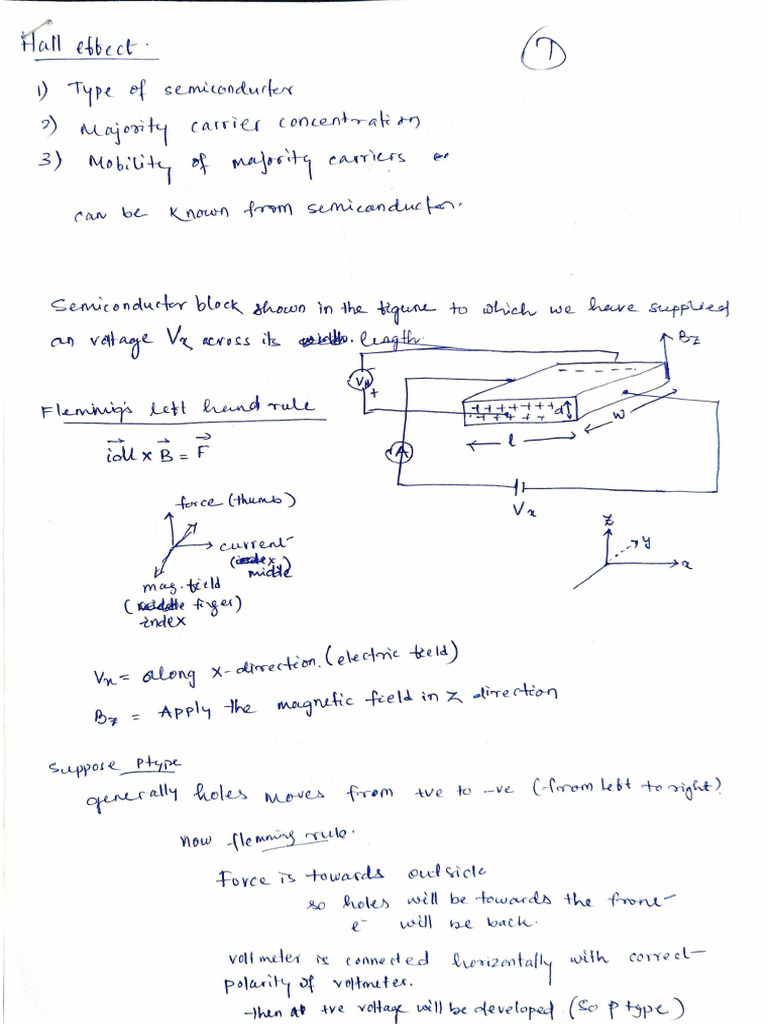 Hall effect.
7
1) Type of semiconductor
2) Majority carrier concentration
3) Mobility of majority carriers
can be known from semiconductor.
Semiconductor block shown in the figure to which we have supplied
an voltage Vx across its length.
Bz
VH
-
+
+ + + + + + +
+ + + + +
d
w
l
A
Vx
Flemmig's left hand rule
idll x B = F
force (thumb)
current
(middle)
mag. field
(finger)
index
z
y
x
Vx = along x-direction. (electric field)
Bz = Apply the magnetic field in z direction
Suppose Ptype
generally holes moves from +ve to -ve (from left to right)
now flemming rule.
Force is towards outside
so holes will be towards the front
e⁻ will be back.
voltmeter is connected horizontally with correct
polarity of voltmeter.
then +ve voltage will be developed (so p type)